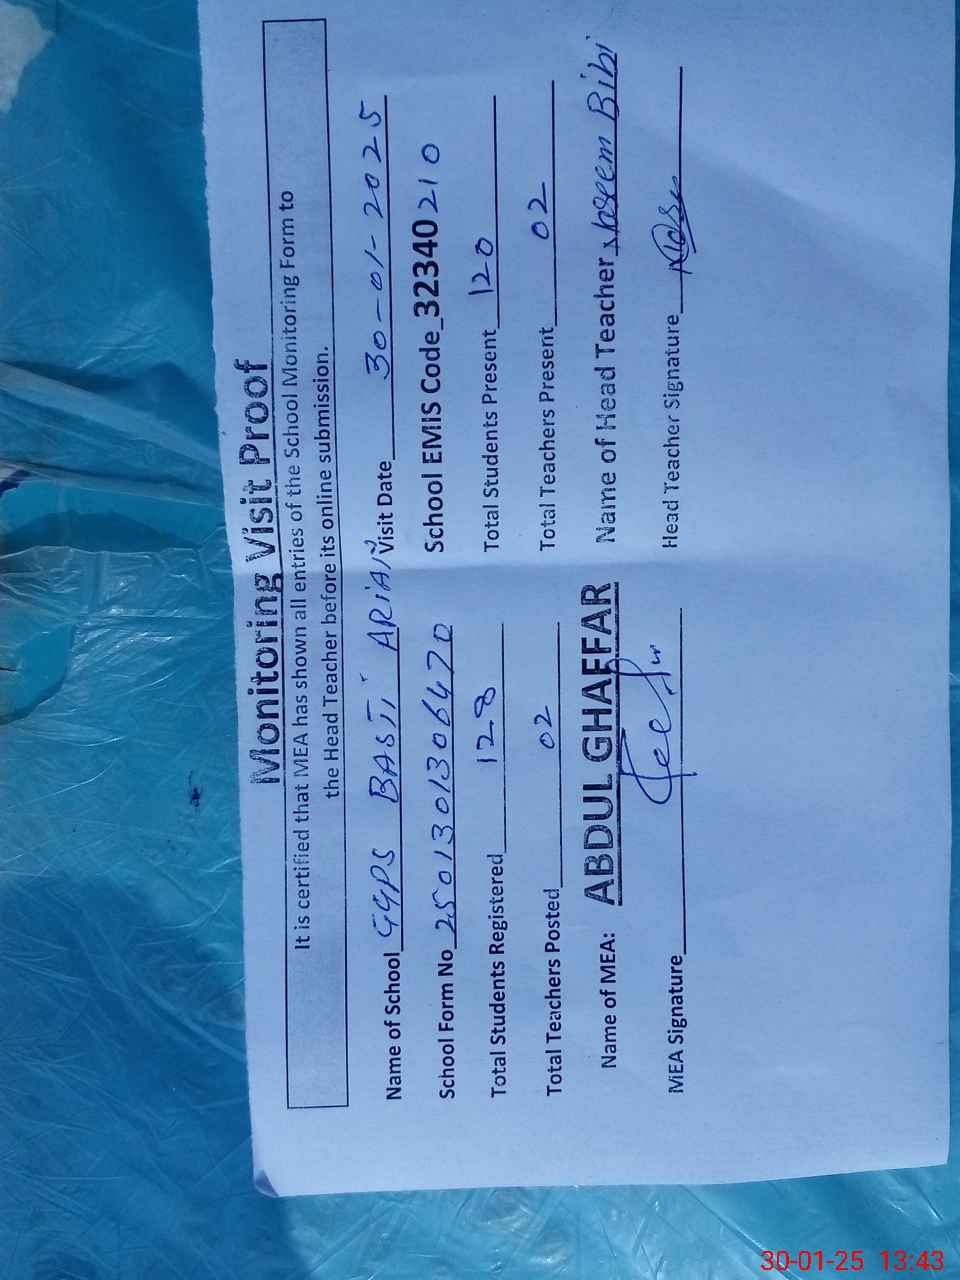 Monitoring Visit Proof
It is certified that MEA has shown all entries of the School Monitoring Form to
the Head Teacher before its online submission.
Name of School GGPS BASTI ARIAN Visit Date 30-01-2025
School Form No 2501301306470 School EMIS Code 32340210
Total Students Registered 128 Total Students Present 120
Total Teachers Posted 02 Total Teachers Present 02
Name of MEA: ABDUL GHAFFAR Name of Head Teacher Bibi
MEA Signature Head Teacher Signature
30-01-25 13:43